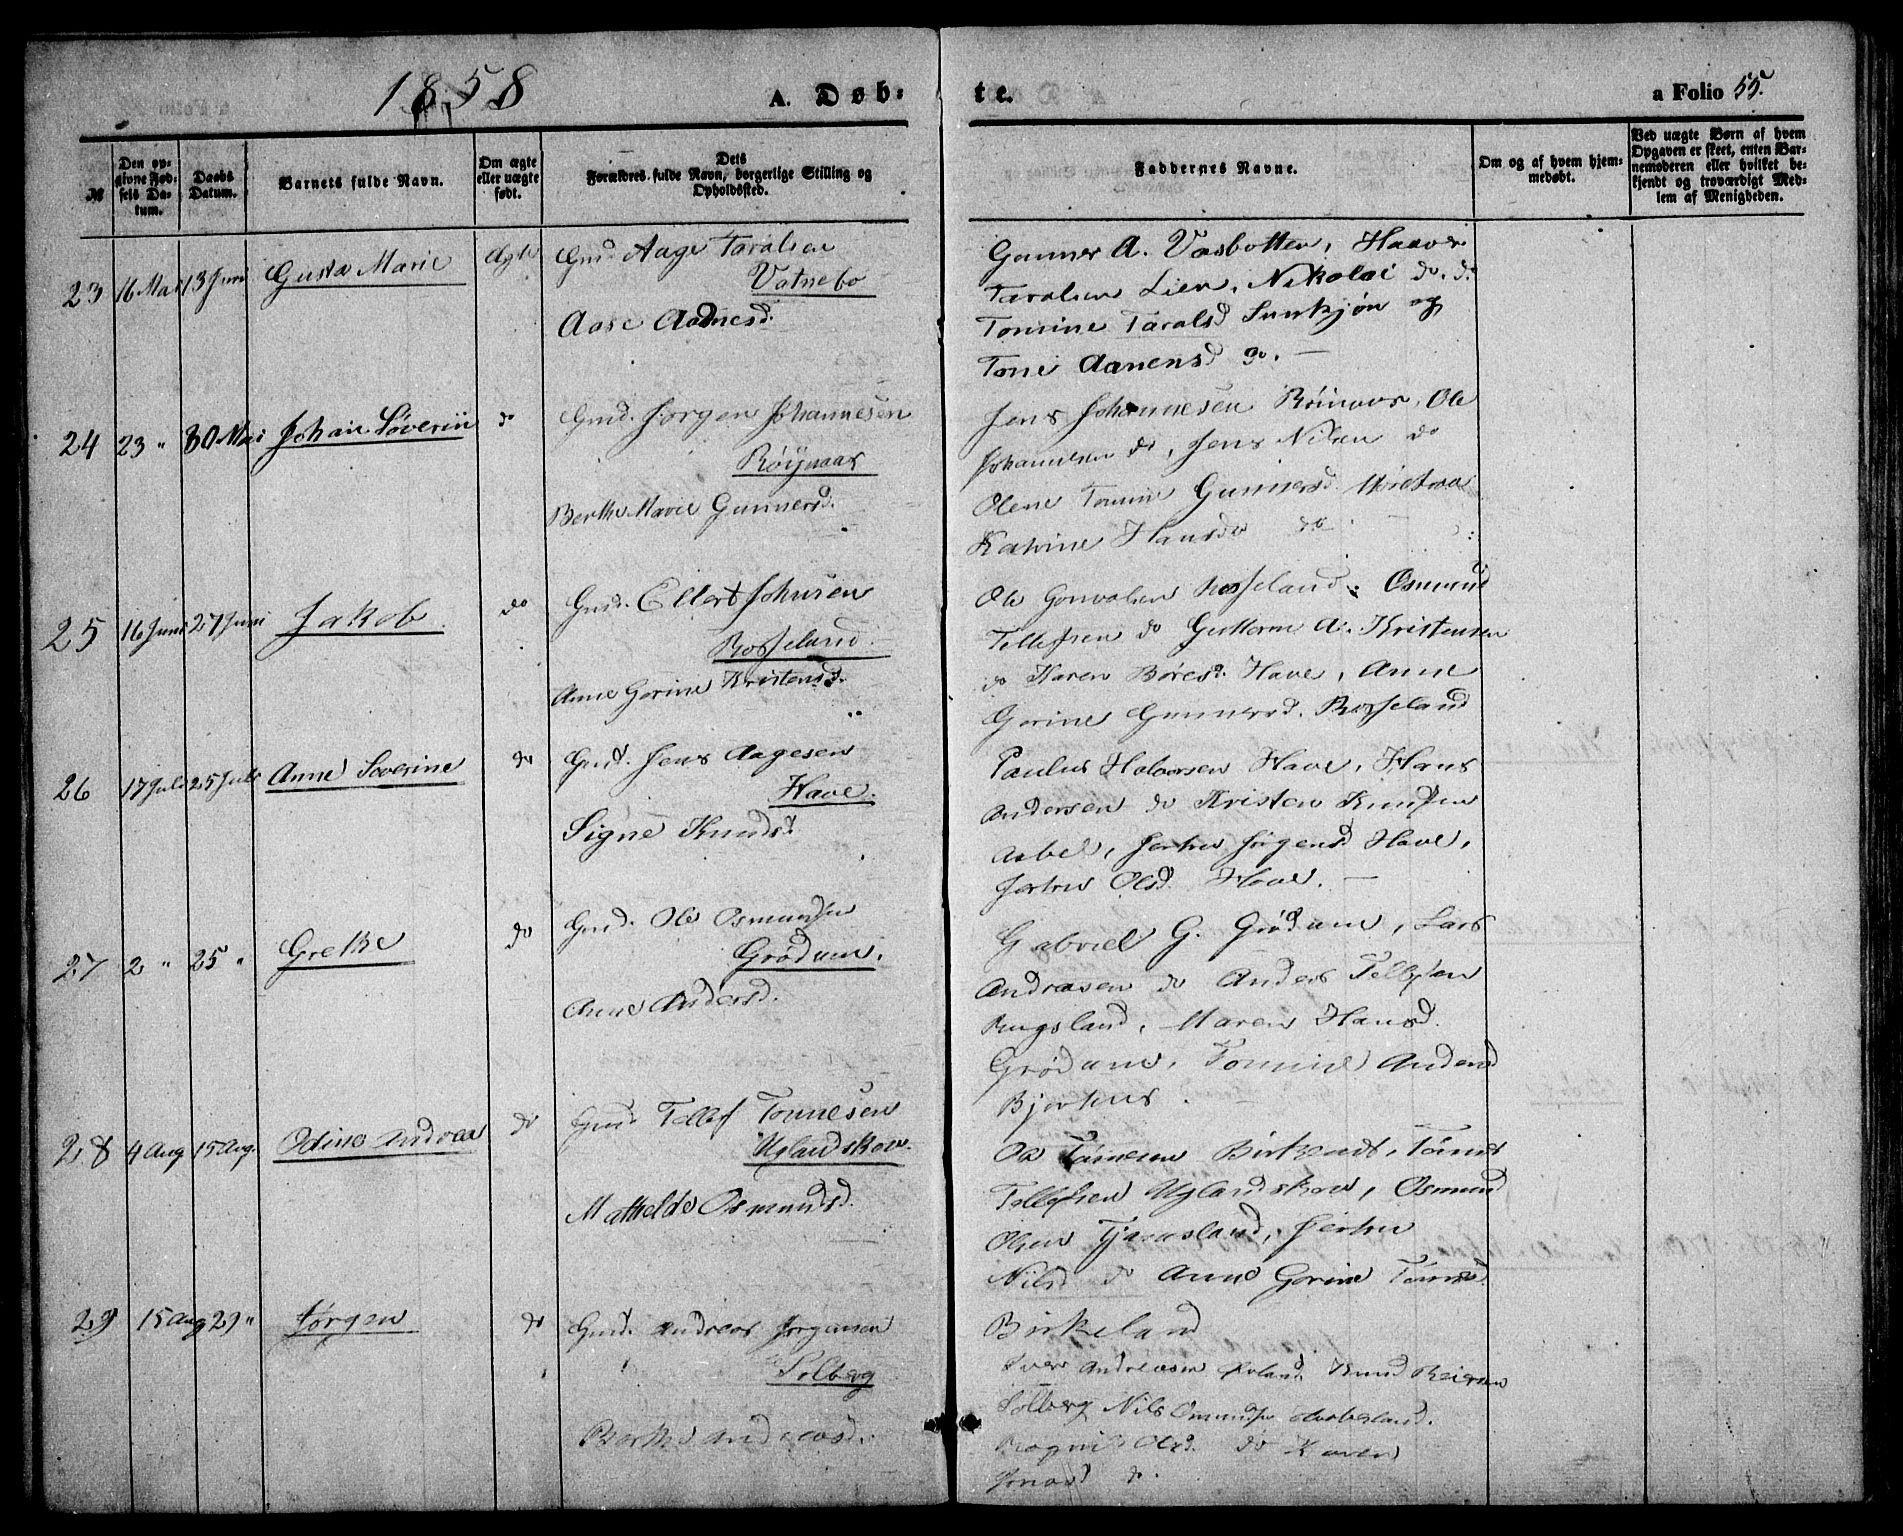 1858
A. Døb-
te.
a Folio 55.
№
Den op-
givne Fød-
sels Da-
tum.
Daabs
Datum.
Barnets fulde Navn.
Om ægte
eller uægte
født.
Dets
Forældres fulde Navn, borgerlige Stilling og
Opholdssted.
Faddernes Navne.
Om og af hvem hjem-
medøbt.
Ved uægte Børn af hvem
Opgaven er skeet, enten Bar-
nemoderen eller hvilket be-
kjendt og troværdigt Med-
lem af Menigheden.
23 16 Mai 13 Juni Gusta Marie Ægte Gmd Aage Taralsen
Vatnebo
Aase Aadnesd.
Gunner A. Vasbotten, Haaver
Taralsen Lien, Nikolai do. do
Tomine Taralsd og
Tone Aanensd do. —
24 23 " 30 Mai Johan Søverin do Gmd. Jørgen Johannesen
Röijnaas
Berthe Marie Gunnersd.
Jens Johannesen Röinaas, Ole
Johannesen do, Jens Nilsen do
Olene Tomine Gunnersd.
Katrine Hansd do
25 16 Juni 27 Juni Jakob. do Gmd. Ellert Johnsen
Rosseland.
Anne Gorine Kristensd.
Ole Gonvalsen Rosseland, Osmund
Tellefsen do Guttorm A. Kristensen
do Karen Børesd. Have, Anne
Gorine Gunnersd. Rosseland
26 17 Juli 25 Juli Anne Soverine do Gmd. Jens Aagesen
Have.
Signe Knudsd.
Paulus Halvorsen Have, Hans
Andersen do Kristen Knudsen
Jørgensd Have,
Olsd. Have. —
27 2 " 25 " Grethe do Gmd. Ole Osmundsen
Grødum.
Anne Andersd.
Gabriel G. Grødum, Lars
Andræsen do Anders Tellefsen
Rugsland, Maren Hansd.
Grødum, Tomine Andersd
Bjorkens.
28 4 Aug 15 Aug. Odine Andrea do Gmd. Tellef Tonnesen
Uglandskov.
Mathilde Osmundsd.
Ole Tønnesen, Tønnes
Tellefsen Uglandskov, Osmund
Olsen Tjønnsland,
Nilsd do Anne Gorine Tønnesd.
Birkeland
29 15 Aug 29 " Jørgen do Gmd. Andreas Jørgensen
Solberg
Berthe Andreasd.
Iver Andreasen Knud Reiersen
Solberg Nils Osmundsen.
Olsd. do Karen
Jonasd do.